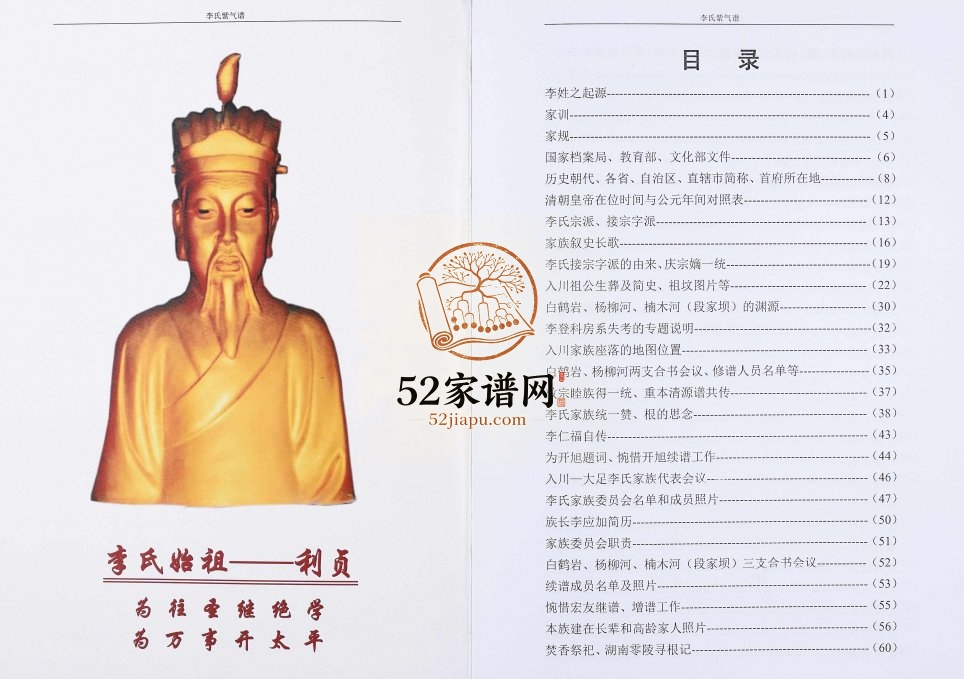 李氏紫气谱
李氏始祖——利贞
为往圣继绝学
为万事开太平
李氏紫气谱
目 录
李姓之起源------(1)
家训------(4)
家规------(5)
国家档案局、教育部、文化部文件------(6)
历史朝代、各省、自治区、直辖市简称、首府所在地------(8)
清朝皇帝在位时间与公元年间对照表------(12)
李氏宗派、接宗字派------(13)
家族叙史长歌------(16)
李氏接宗字派的由来、庆宗嫡一统------(19)
入川祖公生葬及简史、祖坟图片等------(22)
白鹤岩、杨柳河、楠木河（段家坝）的渊源------(30)
李登科房系失考的专题说明------(32)
入川家族座落的地图位置------(33)
白鹤岩、杨柳河两支合书会议、修谱人员名单等------(35)
宗睦族得一统、重本清源谱共传------(37)
李氏家族统一赞、根的思念------(38)
李仁福自传------(43)
为开旭题词、惋惜开旭续谱工作------(44)
入川—大足李氏家族代表会议------(46)
李氏家族委员会名单和成员照片------(47)
族长李应加简历------(50)
家族委员会职责------(51)
白鹤岩、杨柳河、楠木河（段家坝）三支合书会议------(52)
续谱成员名单及照片------(53)
惋惜宏友继谱、增谱工作------(55)
本族建在长辈和高龄家人照片------(56)
焚香祭祀、湖南零陵寻根记------(60)
52家谱网
52jiapu.com